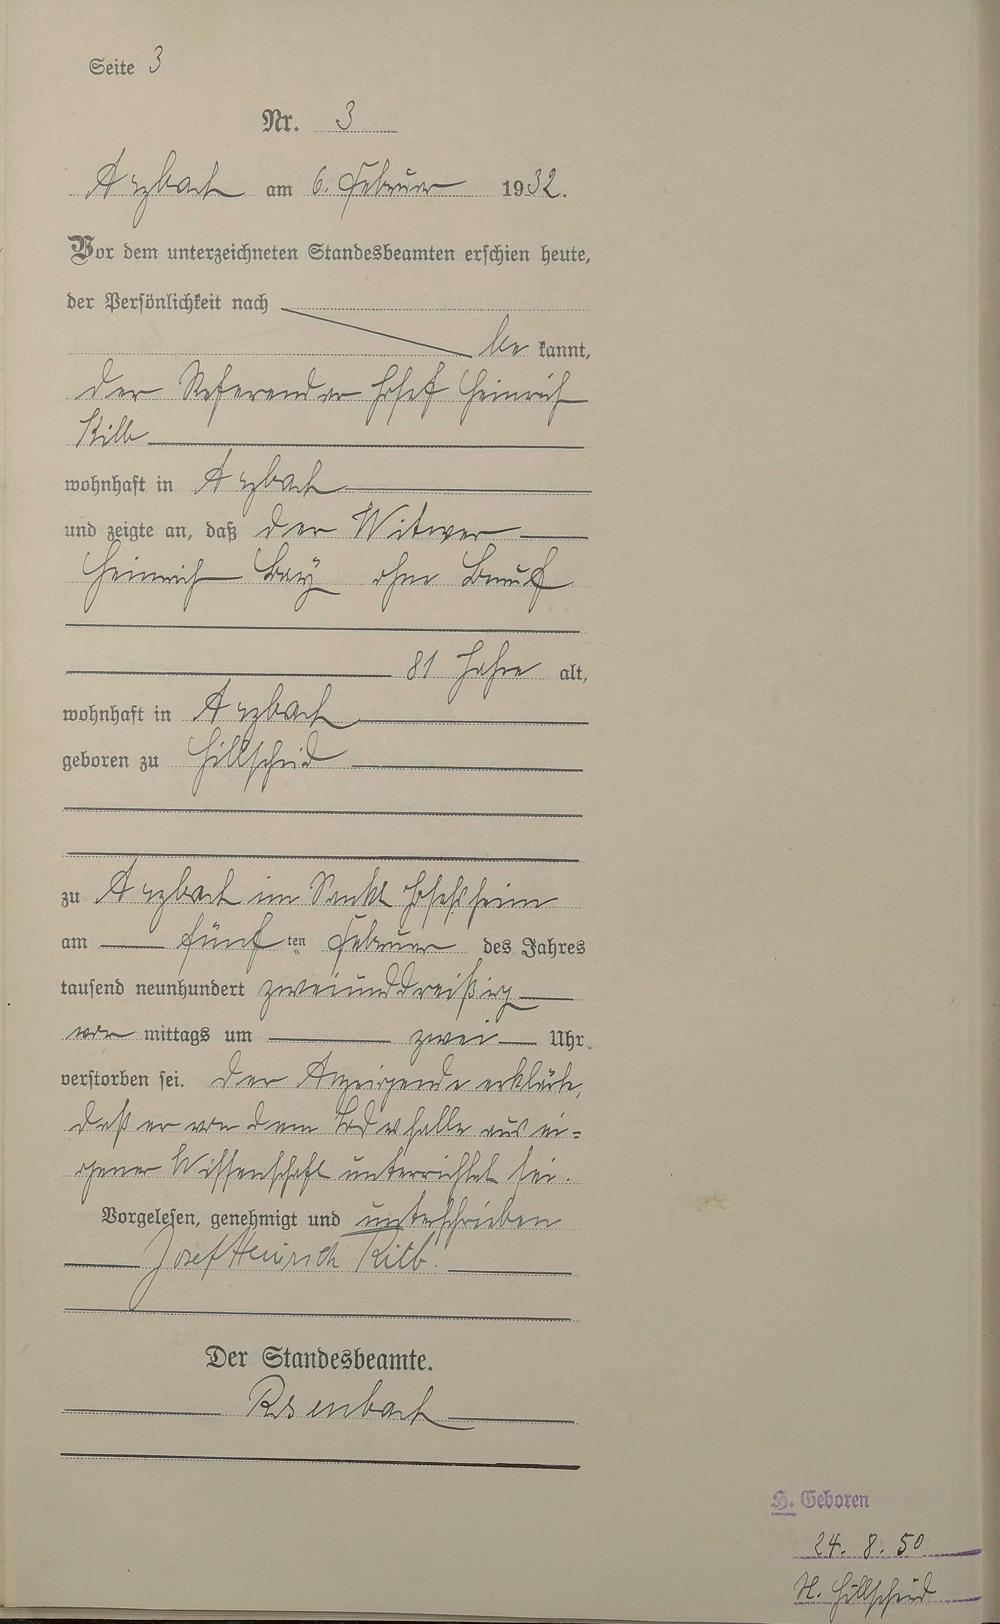 Seite 3
Nr. 3
Arzbach am 6. Februar 1932.
Vor dem unterzeichneten Standesbeamten erschien heute,
der Persönlichkeit nach
be kannt,
der Referendar Josef Heinrich
Kilb
wohnhaft in Arzbach
und zeigte an, daß der Witwer
Heinrich Bay ohne Beruf
81 Jahre alt,
wohnhaft in Arzbach
geboren zu Hillscheid
zu Arzbach im Sankt Josefsheim
am fünf ten Februar des Jahres
tausend neunhundert zweiunddreißig
vor mittags um zwei Uhr
verstorben sei. Der Anzeigende erklärte,
daß er von dem Todesfalle aus ei=
gener Wissenschaft unterrichtet sei.
Vorgelesen, genehmigt und unterschrieben
Josef Heinrich Kilb.
Der Standesbeamte.
H. Geboren
24. 8. 50
Hillscheid